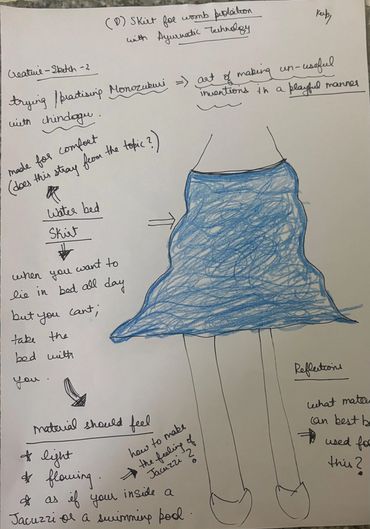 (D) Skirt for womb
with Ayurvedic Technology
Creative-Sketch-2
trying/practising Monozukuri => art of making un-useful
with chindogu. inventions in a playful manner
made for comfort
(does this stray from the topic?)
Water bed
Skirt
when you want to
lie in bed all day
but you cant;
take the
bed with
you.
Material should feel
* light
* flowing.
* as if your inside a
Jacuzzi or a swimming pool.
how to make
the feeling of
Jacuzzi?
Reflections
what mate
can best b
used fo
this?